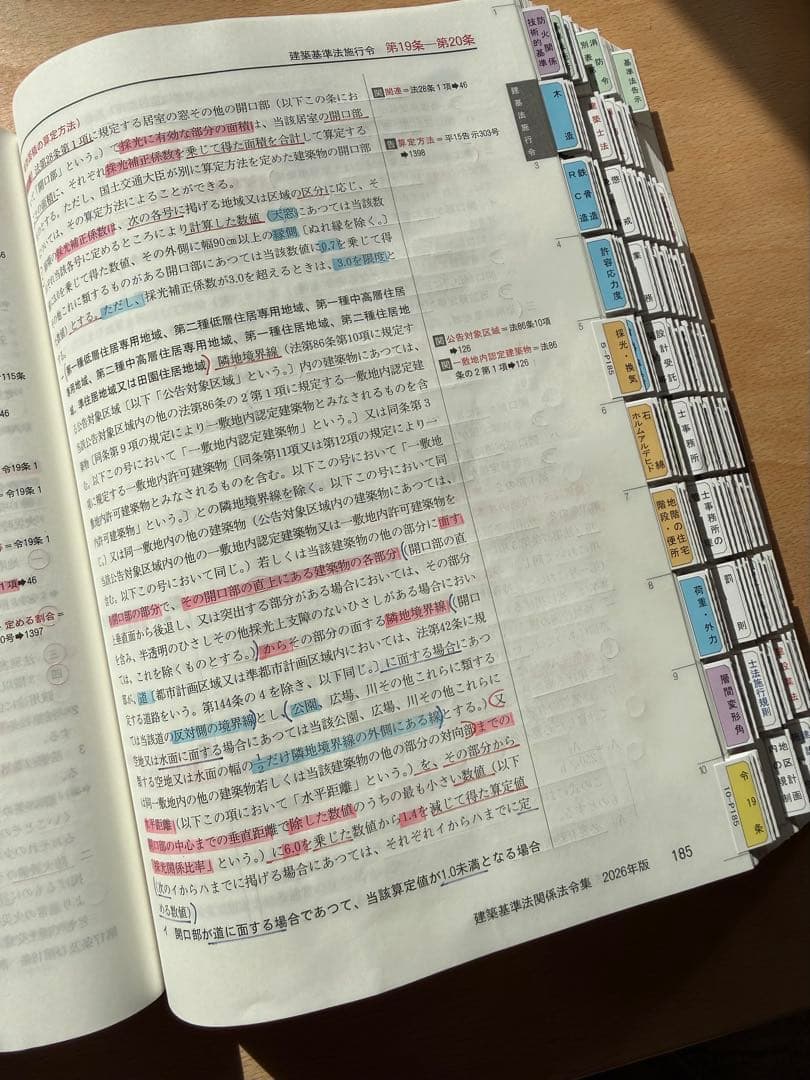 建築基準法施行令 第19条―第20条
の算定方法)
法第28条第1項に規定する居室の窓その他の開口部(以下この条にお
「開口部」という。)で採光に有効な部分の面積は、当該居室の開口部
の面積に、それぞれ採光補正係数を乗じて得た面積を合計して算定する
とする。ただし、国土交通大臣が別に算定方法を定めた建築物の開口部
いては、その算定方法によることができる。
採光補正係数は、次の各号に掲げる地域又は区域の区分に応じ、そ
れ当該各号に定めるところにより計算した数値(天窓にあつては当該数
3.0を乗じて得た数値、その外側に幅90cm以上の縁側(ぬれ縁を除く。)
他これに類するものがある開口部にあつては当該数値に0.7を乗じて得
数値)とする。ただし、採光補正係数が3.0を超えるときは、3.0を限度と
する。
第一種低層住居専用地域、第二種低層住居専用地域、第一種中高層住居
専用地域、第二種中高層住居専用地域、第一種住居地域、第二種住居地
域、準住居地域又は田園住居地域 隣地境界線(法第86条第10項に規定す
る公告対象区域〔以下「公告対象区域」という。〕内の建築物にあつては、
当該公告対象区域内の他の法第86条の2第1項に規定する一敷地内認定建
築物〔同条第9項の規定により一敷地内認定建築物とみなされるものを含
む。以下この号において「一敷地内認定建築物」という。〕又は同条第3
項に規定する一敷地内許可建築物〔同条第11項又は第12項の規定により一
敷地内許可建築物とみなされるものを含む。以下この号において「一敷地
内許可建築物」という。〕との隣地境界線を除く。以下この号において同
じ。)又は同一敷地内の他の建築物(公告対象区域内の建築物にあつては、
当該公告対象区域内の他の一敷地内認定建築物又は一敷地内許可建築物を
含む。以下この号において同じ。)若しくは当該建築物の他の部分に面す
る開口部の部分で、その開口部の直上にある建築物の各部分(開口部の直
上垂直面から後退し、又は突出する部分がある場合においては、その部分
を含み、半透明のひさしその他採光上支障のないひさしがある場合におい
ては、これを除くものとする。)からその部分の面する隣地境界線(開口
部が、道(都市計画区域又は準都市計画区域内においては、法第42条に規
定する道路をいう。第144条の4を除き、以下同じ。)に面する場合にあつ
ては当該道の反対側の境界線とし、公園、広場、川その他これらに類する
空地又は水面に面する場合にあつては当該公園、広場、川その他これらに
類する空地又は水面の幅の1/2だけ隣地境界線の外側にある線とする。)又
は同一敷地内の他の建築物若しくは当該建築物の他の部分の対向部までの
水平距離(以下この項において「水平距離」という。)を、その部分から
開口部の中心までの垂直距離で除した数値のうちの最も小さい数値(以下
「採光関係比率」という。)に6.0を乗じた数値から1.4を減じて得た算定値
(次のイからハまでに掲げる場合にあつては、それぞれイからハまでに定
める数値)
イ 開口部が道に面する場合であつて、当該算定値が1.0未満となる場合
関 関連=法28条1項➡46
告 算定方法=平15告示303号
➡1398
関 公告対象区域=法86条10項
➡126
関 一敷地内認定建築物=法86
条の2第1項➡126
建築基準法関係法令集 2026年版 185
建築基準法施行令
1
3
4
5
6
7
8
9
10
防火関係
技術的基準
木造
鉄骨造
RC造
許容応力度
採光・換気
5-P185
石綿
ホルムアルデヒド
地階の住宅
階段・便所
荷重・外力
層間変形角
令19条
10-P185
消防令
別表
基準法告示
建築士法
懲戒
業務
設計受託
士事務所
士事務所の
罰則
士法施行規則
建設業法
地区計画
の制
115条
46
令19条1
=令19条1
=令19条1
1項➡46
定める割合=
0号➡1397